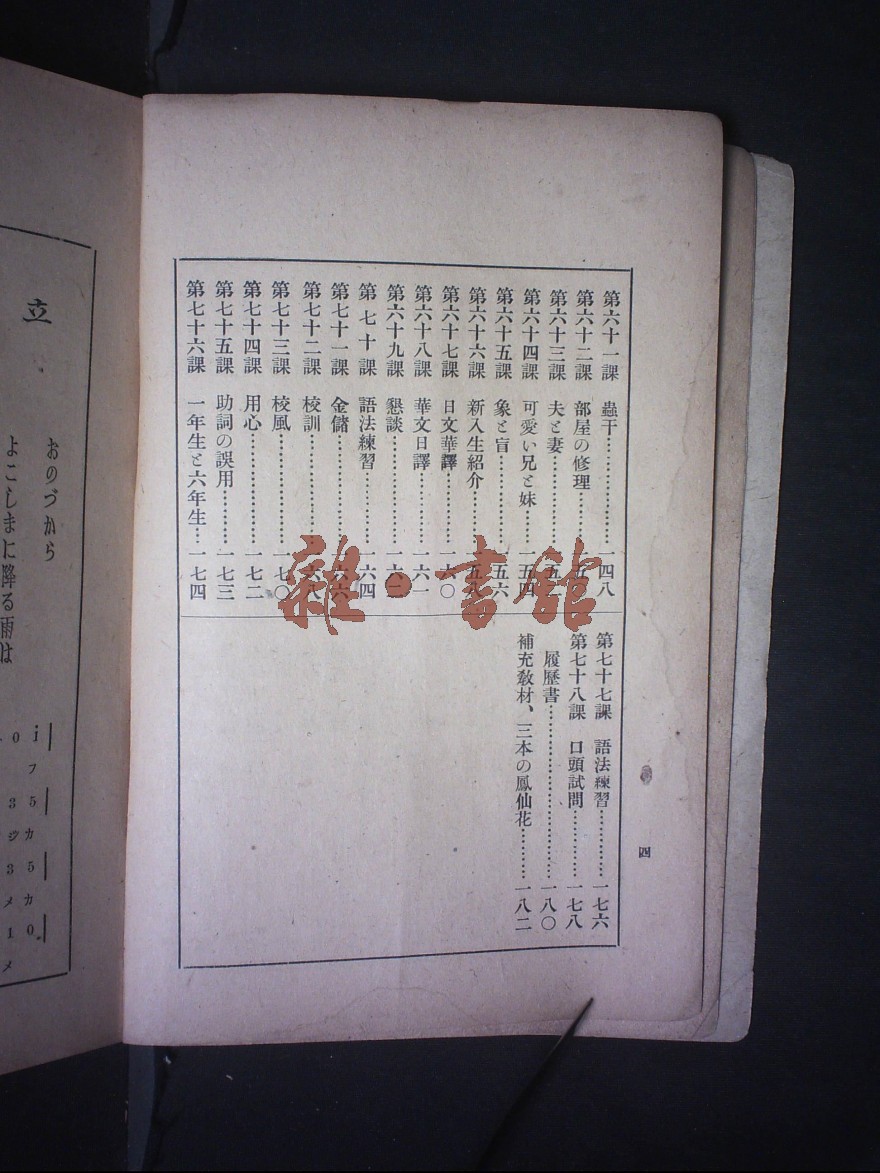 第六十一課　蟲干………………一四八
第六十二課　部屋の修理………一五
第六十三課　夫と妻……………一五
第六十四課　可愛い兄と妹……一五四
第六十五課　象と盲……………一五六
第六十六課　新入生紹介………一五八
第六十七課　日文華譯…………一六〇
第六十八課　華文日譯…………一六一
第六十九課　懇談………………一六
第七十課　語法練習……………一六四
第七十一課　金儲………………一六六
第七十二課　校訓………………一六八
第七十三課　校風………………一七〇
第七十四課　用心………………一七二
第七十五課　助詞の誤用………一七三
第七十六課　一年生と六年生…一七四
第七十七課　語法練習…………一七六
第七十八課　口頭試問…………一七八
履歷書……………………………一八〇
補充教材、三本の鳳仙花………一八二
四
雜·書館
立
おのづから
よこしまに降る雨は
i 5 5 0
フ カ カ
0 3 3 1
ジ メ メ